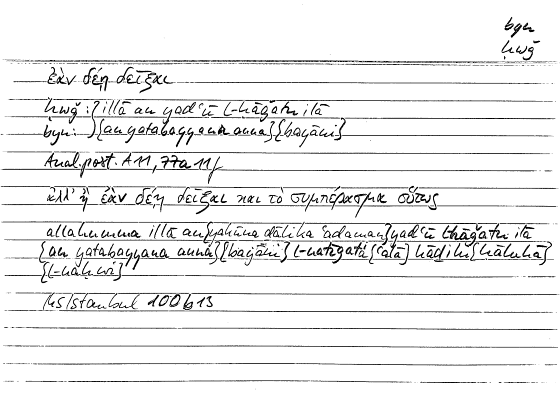 byn
ḥwǧ
ἐὰν δέῃ δεῖξαι
ḥwǧ: } illā an yadʿū l-ḥāǧatu ilā
byn: } {an yatabayyana anna} {bayāni}
Anal. post. A 11, 77a 11f
ἀλλ' ἢ ἐὰν δέῃ δεῖξαι καὶ τὸ συμπέρασμα οὕτως
allahumma illā an {yakūna dālika ʿadaman} yadʿū l-ḥāǧatu ilā
{an yatabayyana anna} {bayāni} l-natīǧati {ʿalā} hādihi {ḥāluhā}
{l-naḥwi}
Ms Istanbul 100b13